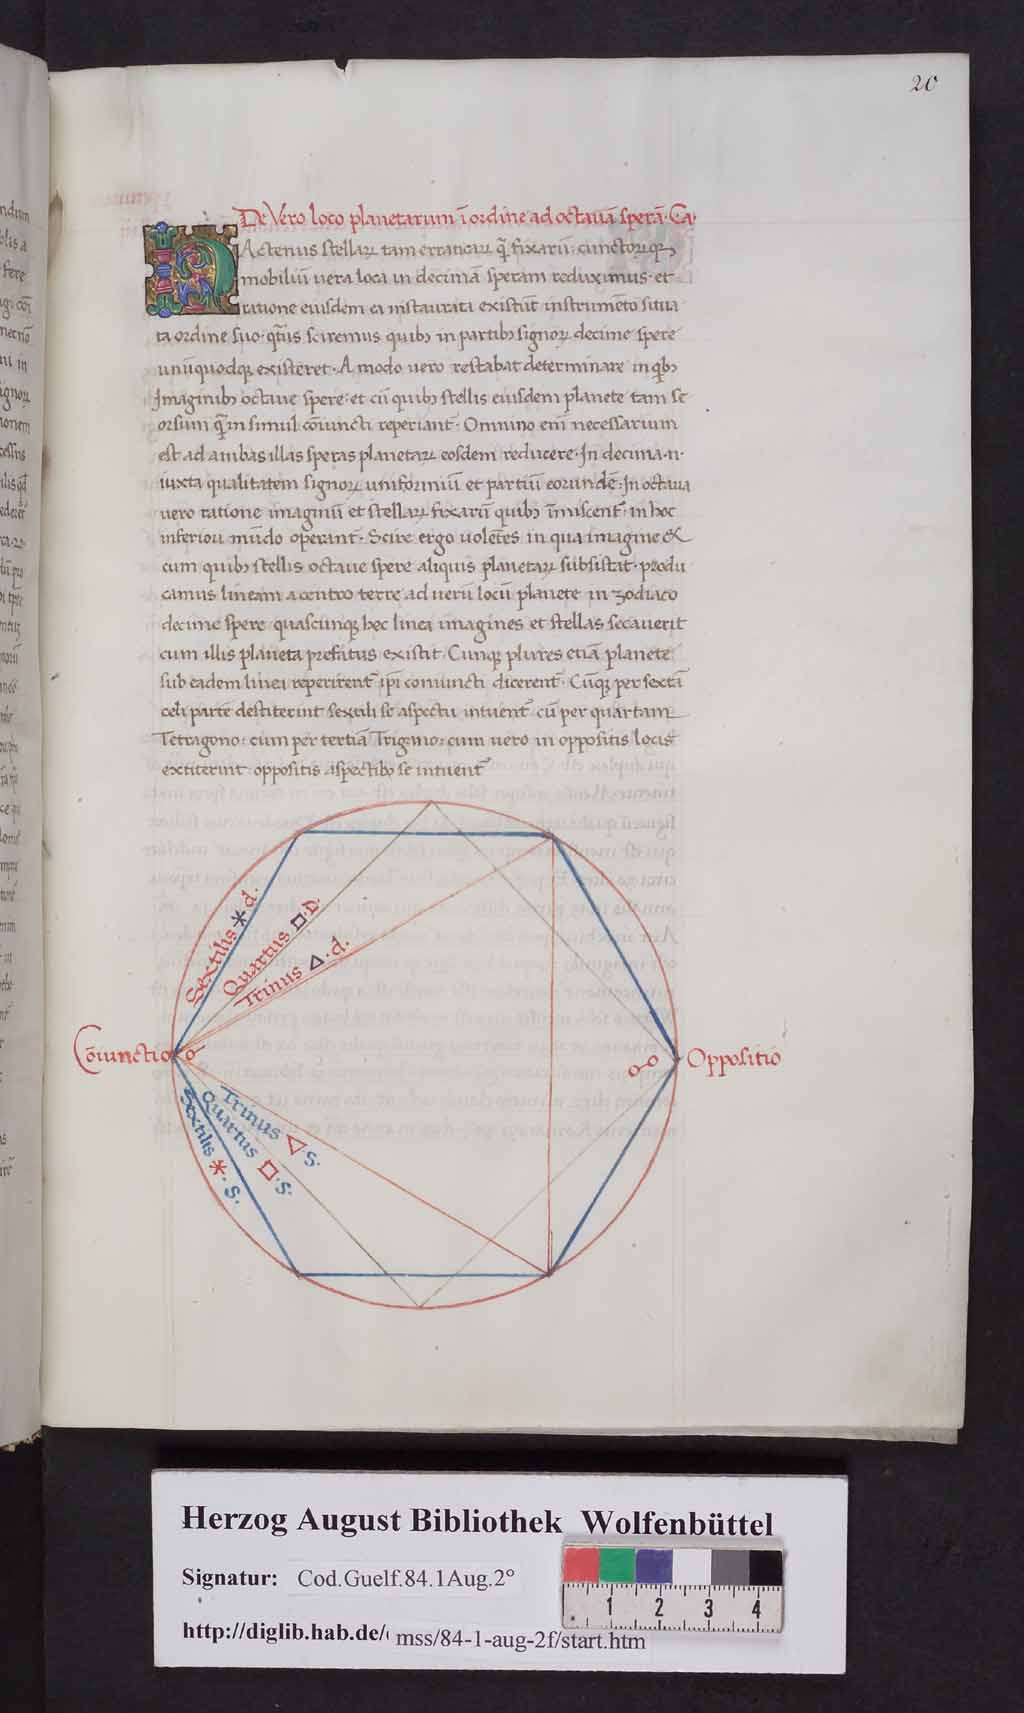 20
De Vero loco planetarum ī ordine ad octauā sperā. Ca.
HActenus stellaꝝ tam erraticaꝝ q̄ fixarū: cunctorūqꝫ
mobiliū uera loca in decimā speram reduximus. et
ratione eiusdem ea instaurata existūt instrumēto situa
ta ordine suo. qtus sciremus quibꝫ in partibꝫ signoꝝ decime spere
unūquodqꝫ existeret. A modo uero restabat determinare in qbꝫ
Imaginibꝫ octaue spere: et cū quibꝫ stellis eiusdem planete tam se
orsum q̄ in simul cōiuncti reperiant. Omnino eni necessarium
est ad ambas illas speras planetaꝝ eosdem reducere. In decima .n.
iuxta qualitatem signoꝝ uniformiū et partiū eorundē: In octaua
uero ratione imaginū et stellaꝝ fixarū quibꝫ īmiscent. in hoc
inferiori mūdo operant. Scire ergo uolētes in qua imagine &
cum quibꝫ stellis octaue spere aliquis planetaꝝ subsistat. produ
camus lineam a centro terre ad uerū locū planete in zodiaco
decime spere quascunqꝫ hec linea imagines et stellas secauerit
cum illis planeta prefatus existit. Cunqꝫ plures etiā planete
sub eadem linea reperirent ipi coniuncti dicerent. Cūqꝫ per sextā
celi partē destiterint sextili se aspectu intuent cū per quartam
Tetragono: cum per tertiā Trigono: cum uero in oppositis locis
extiterint: oppositis aspectibꝫ se intuent
Sextilis * d.
Quartus □ D.
Trinus △ . d.
Cōiunctio ☌
☍ Oppositio
Trinus △ . S.
Quartus □ . S.
Sextilis * . S.
Herzog August Bibliothek Wolfenbüttel
Signatur: Cod.Guelf.84.1Aug.2°
http://diglib.hab.de/ mss/84-1-aug-2f/start.htm
1 2 3 4